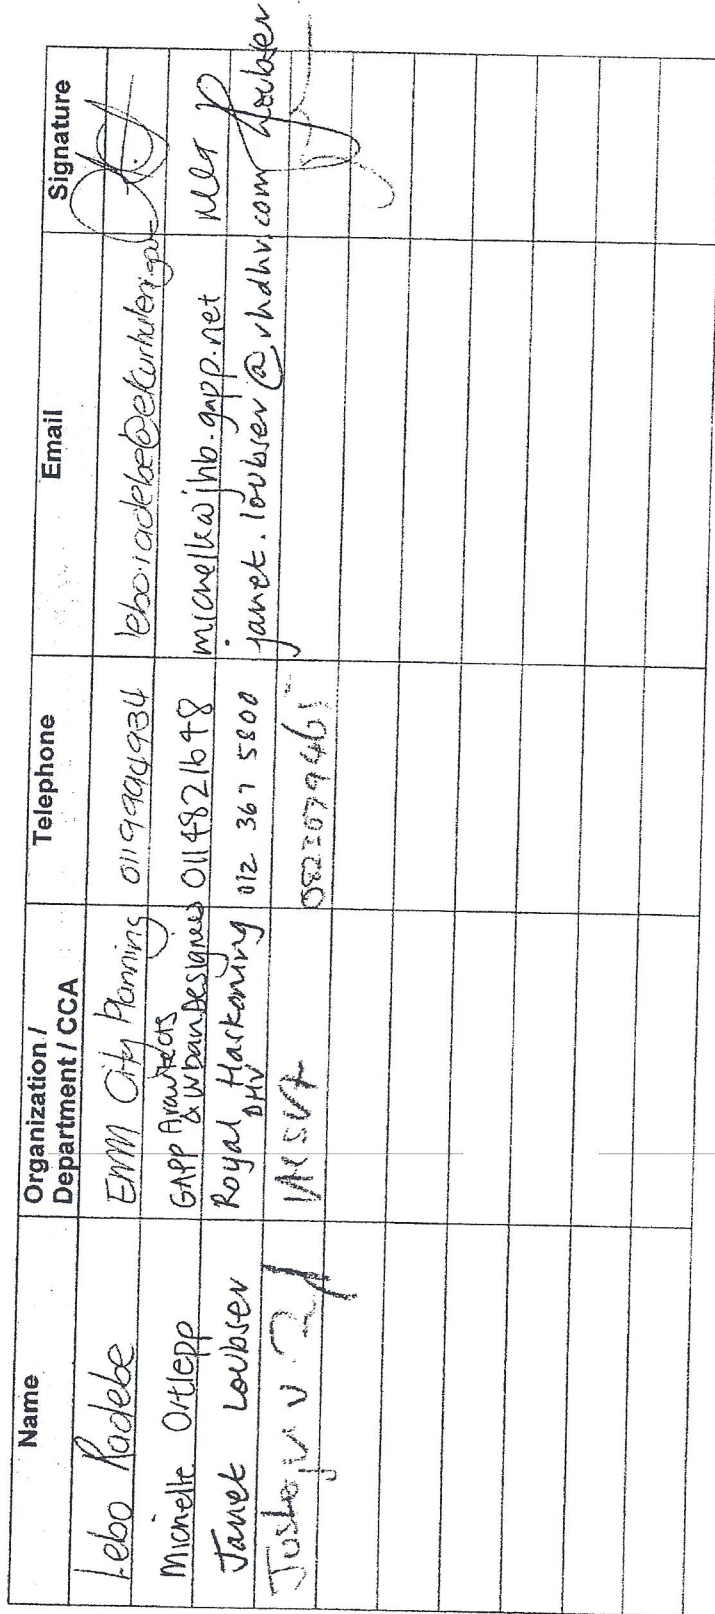 Name
Organization /
Department / CCA
Telephone
Email
Signature
Lebo Radebe
EMM City Planning
0119994934
lebo.radebe@ekurhuleni.gov
Michelle Ortlepp
GAPP Architects
& Urban Designers
0114821648
michelle@jhb.gapp.net
Janet Loubser
Royal Haskoning
DHV
012 367 5800
janet.loubser@rhdhv.com
Loubser